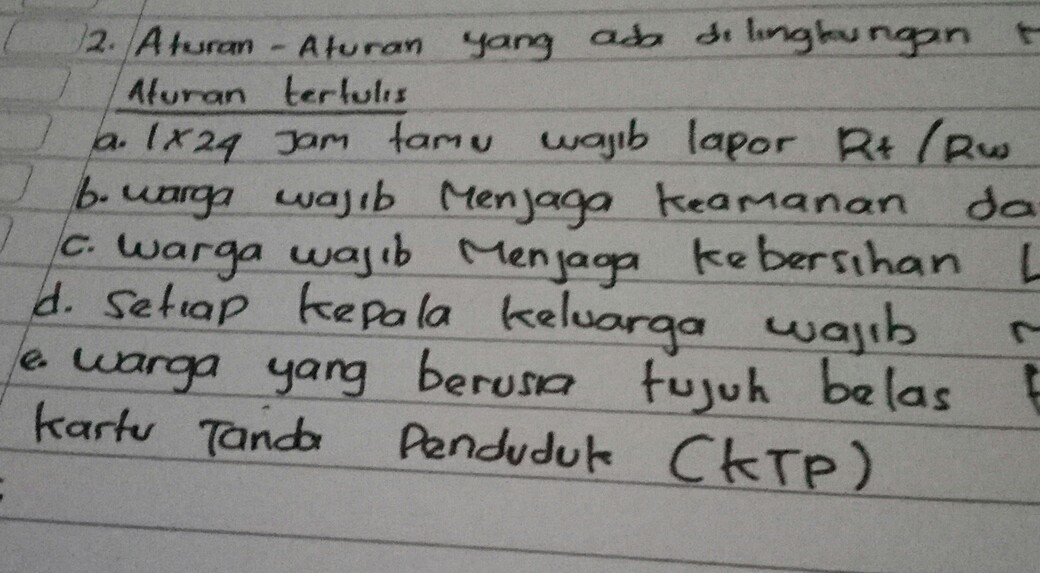 2. Aturan - Aturan yang ada di lingkungan
Aturan tertulis
a. 1x24 Jam tamu wajib lapor Rt / Rw
b. warga wajib Menjaga keamanan da
c. warga wajib Menjaga kebersihan L
d. Setiap kepala keluarga wajib
e. warga yang berusia tujuh belas
kartu Tanda Penduduk (KTP)